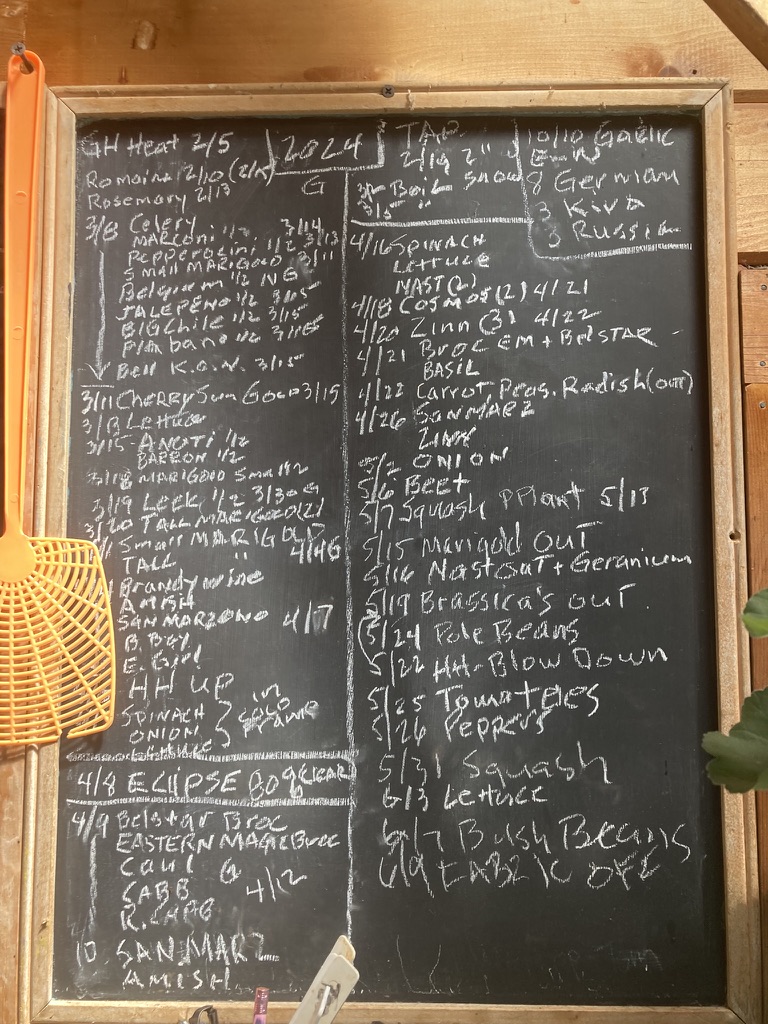 GH Heat 2/5
2024
Romaine 2/10
G
Rosemary 2/13
3/8 Celery 3/14
MARCONI 1/2 3/13
Pepperocini 1/2
SMAll MARIGOLD 3/11
Belgium 1/2 NG
JALEPENO 1/2 3/15
BIG Chile 1/2 3/15
Bell K.O.N. 3/15
3/11 Cherry Sun Gold 3/15
3/13 Lettuce
3/15 1/2
BARRON 1/2
3/18 MARIGOLD Small 1/2
3/19 Leek 1/2 3/30 G
3/20 TALL MARIGOLD (2)
Small MARIGOLD
TALL "
Brandywine
AMISH
SAN MARZONO 4/7
B. Boy
E. Girl
HH UP
SPINACH } in COLD Frame
ONION
Lettuce
4/8 ECLIPSE
4/9 Belstar Broc
EASTERN MAGIC Broc
Caul G
CABB 4/12
R. CABB
10 SAN MARZ
AMISH
TAP
2/19 2"
Boil snow
3/15 "
10/10 Gaelic
8 German
3 Kiva
3 Russia
4/16 SPINACH
Lettuce
NAST (2)
4/18 COSMOS (2) 4/21
4/20 Zinn (3) 4/22
4/21 Broc EM + BelSTAR
BASIL
4/22 Carrot, Peas, Radish (out)
4/26 SANMARZ
ZINN
5/2 ONION
5/6 Beet
5/7 Squash 5/13
5/15 Marigold OUT
5/16 Nast OUT + Geranium
5/19 Brassica's OUT.
5/24 Pole Beans
5/22 HH-Blow Down
5/25 Tomatoes
5/26 Peppers
5/31 Squash
6/3 Lettuce
6/7 Bush Beans
6/9 OFF